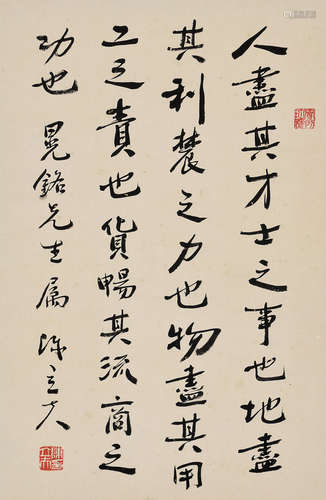 人盡其才士之事也地盡
其利農之力也物盡其用
工之責也貨暢其流商之
功也 晃銘先生属 陳立夫